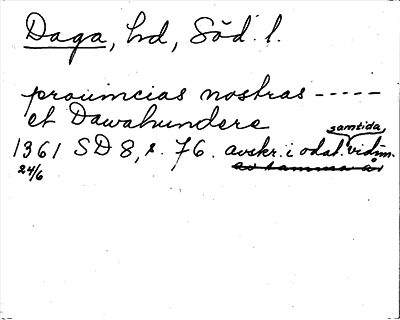 Daga, hd, Söd. l.
prouincias nostras -----
et Dawahundere
samtida
1361 SD 8, s. 76. avskr. i odat. vidim.
24/6 av samma år